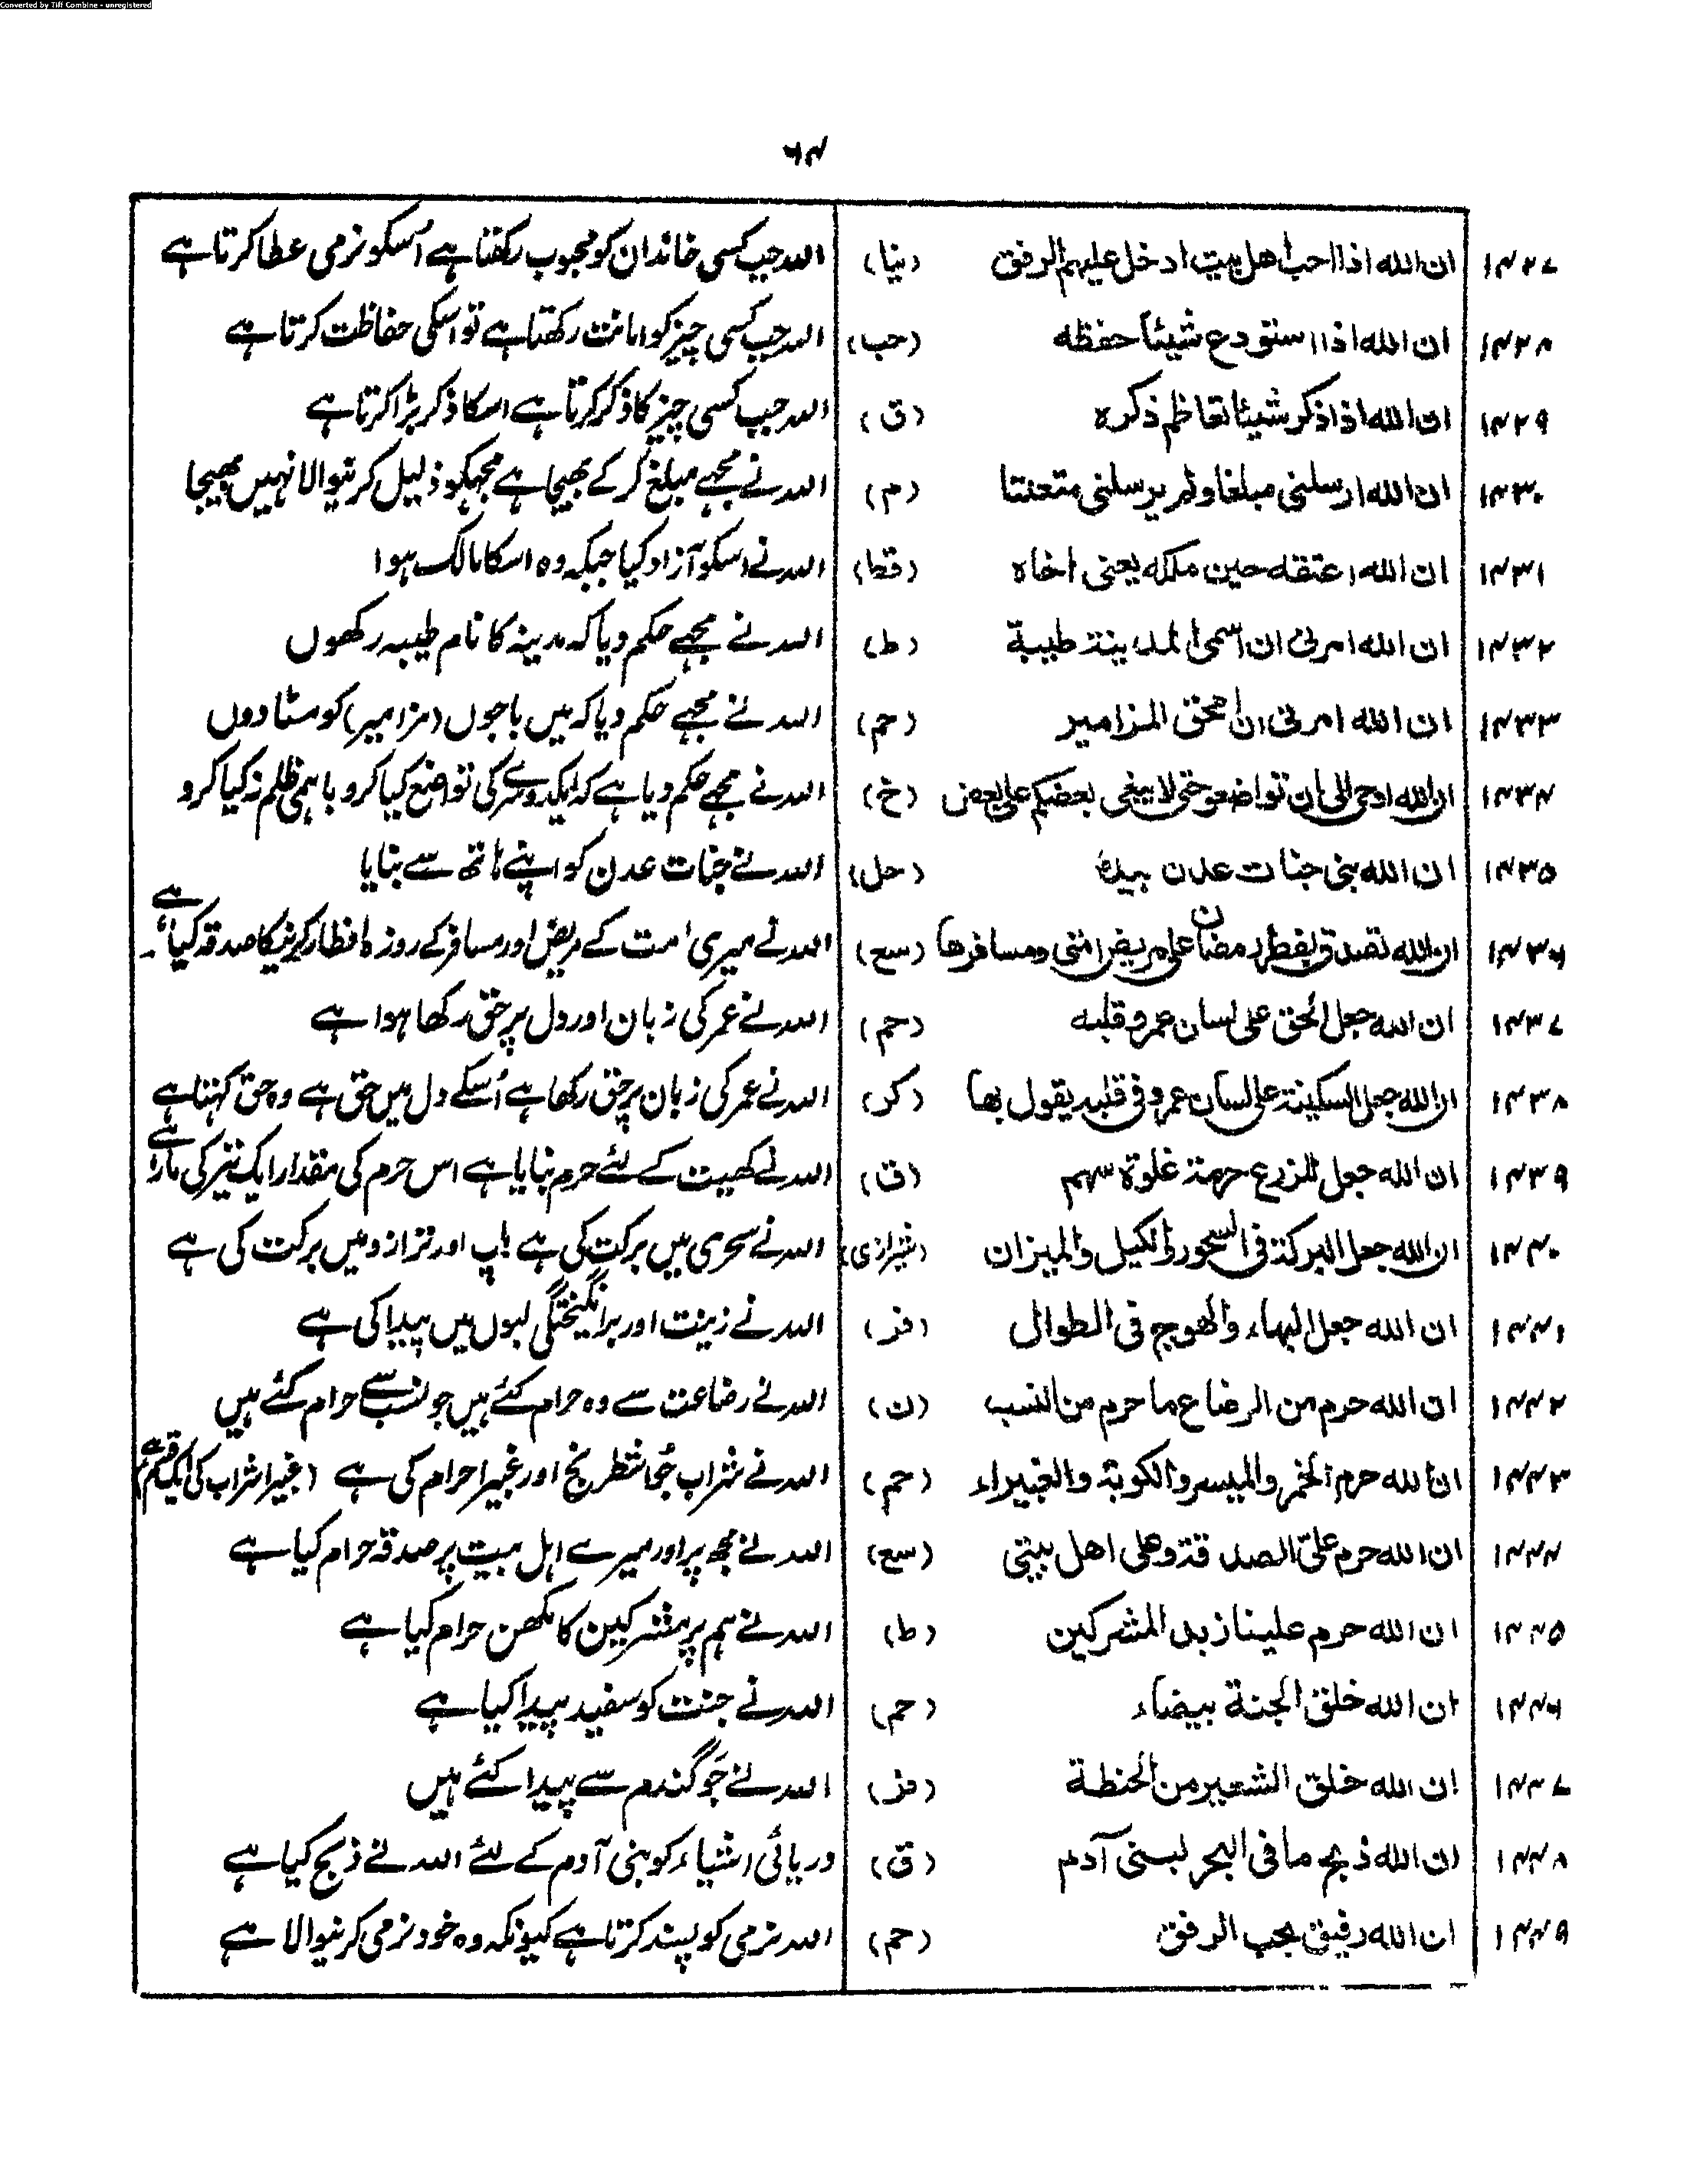 Converted by Tiff Combine - unregistered
۶۴
۱۴۲۷ ان الله اذا احب اهل بیت ادخل علیهم الرفق (نیا) اللہ جب کسی خاندان کو محبوب رکھتا ہے اُسکو نرمی عطا کرتا ہے
۱۴۲۸ ان الله اذا استودع شیئاً حفظه (حب) اللہ جب کسی چیز کو امانت رکھتا ہے تو اسکی حفاظت کرتا ہے
۱۴۲۹ ان الله اذا ذکر شیئا تعاظم ذکره (ق) اللہ جب کسی چیز کا ذکر کرتا ہے اسکا ذکر بڑا کرتا ہے
۱۴۳۰ ان الله ارسلنی مبلغا ولم یرسلنی متعنتا (م) اللہ نے مجھے مبلغ کر کے بھیجا ہے مجھکو ذلیل کرنیوالا نہیں بھیجا
۱۴۳۱ ان الله اعتقه حین ملکه یعنی اخاه (قط) اللہ نے اسکو آزاد کیا جبکہ وہ اسکا مالک ہوا
۱۴۳۲ ان الله امرنی ان اسمی المدینة طیبة (ط) اللہ نے مجھے حکم دیا کہ مدینہ کا نام طیبہ رکھوں
۱۴۳۳ ان الله امرنی ان امحق المزامیر (حم) اللہ نے مجھے حکم دیا کہ میں باجوں (مزامیر) کو مٹا دوں
۱۴۳۴ ان الله اوحی الی ان تواضعوا حتی لا یبغی بعضکم علی بعض (خ) اللہ نے مجھے حکم دیا ہے کہ ایکدوسرے کی تواضع کیا کرو باہمی ظلم نہ کیا کرو
۱۴۳۵ ان الله بنی جنات عدن بیده (حل) اللہ نے جنات عدن کو اپنے ہاتھ سے بنایا
۱۴۳۶ ان الله تصدق بفطر رمضان علی مریض امتی ومسافرها (سع) اللہ نے میری امت کے مریض اور مسافر کے روزہ افطار کرنیکا صدقہ کیا ہے
۱۴۳۷ ان الله جعل الحق علی لسان عمر وقلبه (حم) اللہ نے عمر کی زبان اور دل پر حق رکھا ہوا ہے
۱۴۳۸ ان الله جعل السکینة علی لسان عمر وفی قلبه یقول بها (کر) اللہ نے عمر کی زبان پر حق رکھا ہے اُسکے دل میں حق ہے وہ حق کہتا ہے
۱۴۳۹ ان الله جعل للزرع حرمة غلوة سهم (ق) اللہ نے کھیت کے لئے حرم بنایا ہے اس حرم کی مقدار ایک تیر کی مار ہے
۱۴۴۰ ان الله جعل البرکة فی السحور والکیل والمیزان (شیرازی) اللہ نے سحری میں برکت کی ہے ناپ اور ترازو میں برکت کی ہے
۱۴۴۱ ان الله جعل البهاء والهوج فی الطوال (فر) اللہ نے زینت اور برانگیختگی لبوں میں پیدا کی ہے
۱۴۴۲ ان الله حرم من الرضاع ما حرم من النسب (ن) اللہ نے رضاعت سے وہ حرام کئے ہیں جو نسب سے حرام کئے ہیں
۱۴۴۳ ان الله حرم الخمر والمیسر والکوبة والغبیراء (حم) اللہ نے شراب جُوا شطرنج اور غبیرا حرام کی ہے (غبیرا شراب کی ایک قسم ہے)
۱۴۴۴ ان الله حرم علیّ الصدقة وعلی اهل بیتی (سع) اللہ نے مجھ پر اور میرے اہل بیت پر صدقہ حرام کیا ہے
۱۴۴۵ ان الله حرم علینا زبد المشرکین (ط) اللہ نے ہم پر مشرکین کا مکھن حرام کیا ہے
۱۴۴۶ ان الله خلق الجنة بیضاء (حم) اللہ نے جنت کو سفید پیدا کیا ہے
۱۴۴۷ ان الله خلق الشعیر من الحنطة (فر) اللہ نے جَو گندم سے پیدا کئے ہیں
۱۴۴۸ ان الله ذبح ما فی البحر لبنی آدم (ق) دریائی اشیاء کو بنی آدم کے لئے اللہ نے ذبح کیا ہے
۱۴۴۹ ان الله رفیق یحب الرفق (حم) اللہ نرمی کو پسند کرتا ہے کیونکہ وہ خود نرمی کرنیوالا ہے